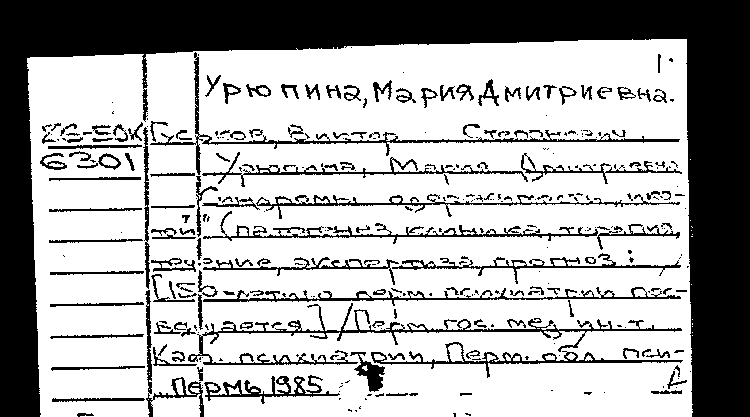 1.
Урюпина, Мария Дмитриевна.
86-50К Гуськов, Виктор Степанович.
6301 Урюпина, Мария Дмитриевна
Синдромы одержимости „ико-
той" (патогенез, клиника, терапия,
течение, экспертиза, прогноз:
[150-летию перм. психиатрии пос-
вящается.] / Перм. гос. мед. ин-т.
Каф. психиатрии, Перм. обл. пси-
Пермь, 1985.